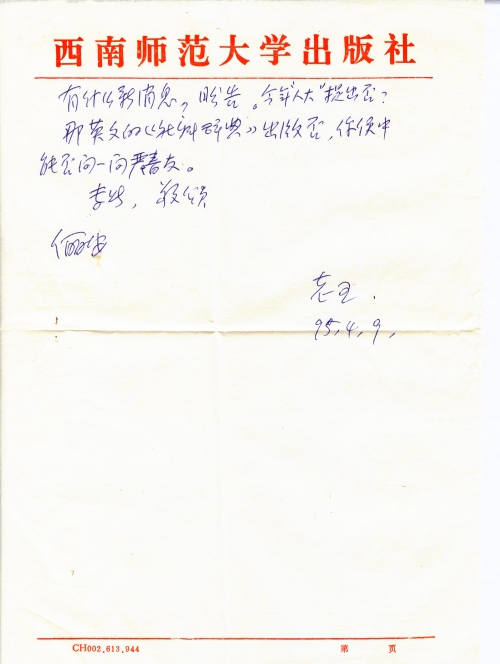 西南师范大学出版社
有什么新消息，盼告。今年"人大"提出否？
那英文的《辞典》出版否，你便中
能否问一问严春友。
专此，敬颂
俪安
老王.
95.4.9.
CH002.613.944
第 页